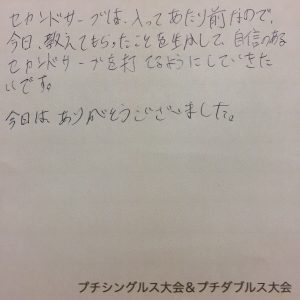 セカンドサーブは、入ってあたり前なので、
今日、教えてもらったことを生かして、自信のある
セカンドサーブを打てるようにしていきた
いです。
今日はありがとうございました。
プチシングルス大会＆プチダブルス大会